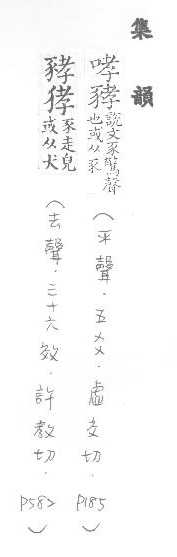 集韻
哮豞說文豕驚聲也或从豕
(平聲．五爻．虛交切．P185)
豞㹲豕走皃或从犬
(去聲．三十六效．許教切．P582)